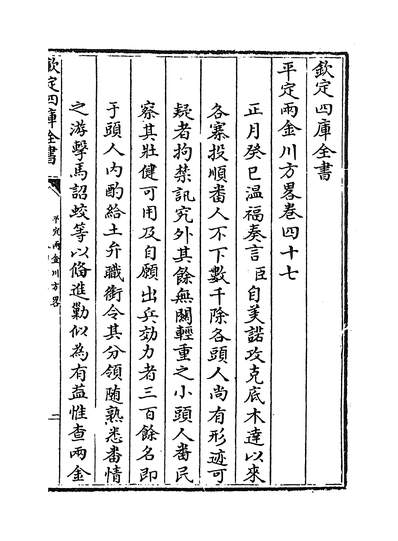 欽定四庫全書
平定兩金川方畧卷四十七
正月癸巳温福奏言臣自美諾攻克底木達以來
各寨投順畨人不下數千除各頭人尚有形迹可
疑者拘禁訊究外其餘無關輕重之小頭人畨民
察其壯健可用及自願出兵効力者三百餘名即
于頭人内酌給土弁職銜令其分領隨熟悉畨情
之游擊馬詔蛟等以俻進勦似為有益惟查兩金
欽定四庫全書
平定兩金川方畧
一